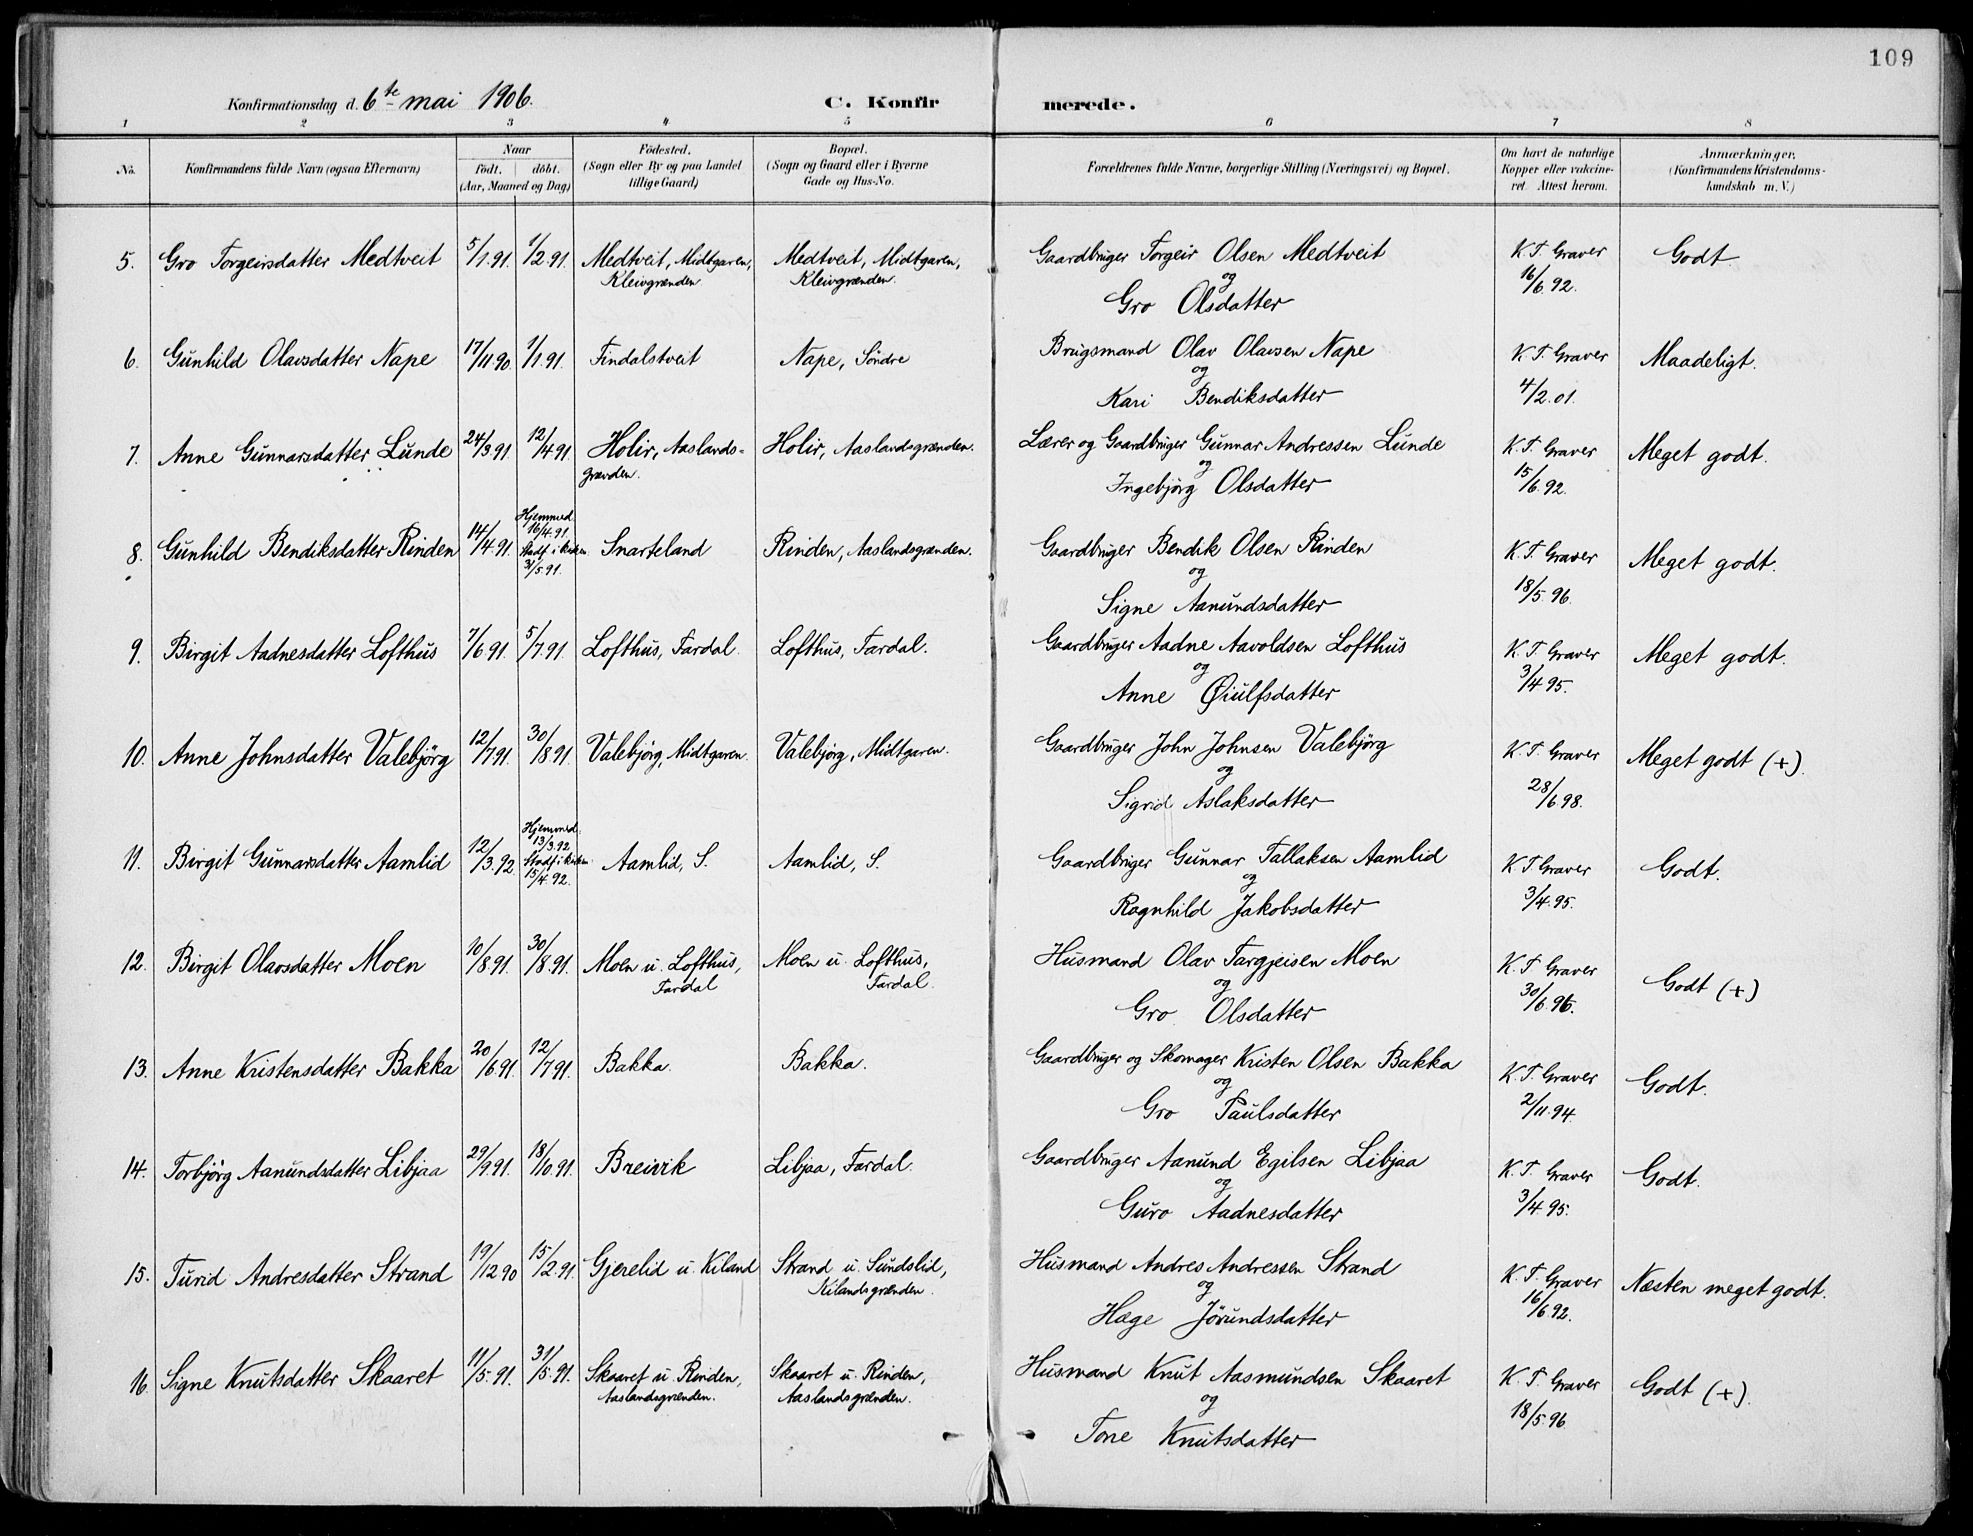 109
Konfirmationsdag d. 6te mai 1906. C. Konfirmerede.
1 2 3 4 5 6 7 8
No. Konfirmandens fulde Navn (ogsaa Efternavn) Naar födt. döbt. (Aar, Maaned og Dag) Födested. (Sogn eller By og paa Landet tillige Gaard) Bopæl. (Sogn og Gaard eller i Byerne Gade og Hus-No. Forældrenes fulde Navne, borgerlige Stilling (Næringsvei) og Bopæl. Om havt de naturlige Kopper eller vakcineret. Attest herom. Anmærkninger. (Konfirmandens Kristendomskundskab m. V.)
5. Gro Torgeirsdatter Medtveit 5/1.91. 1/2.91. Medtveit, Midtgaren, Medtveit, Midtgaren, Gaardbruger Torgeir Olsen Medtveit K. T. Graver Godt.
Kleivgrænden Kleivgrænden. og 16/6.92.
Gro Olsdatter
6. Gunhild Olavsdatter Nape 17/11.90. 1/1.91. Findalstveit Nape, Söndre Brugsmand Olav Olavsen Nape K. T. Graver Maadeligt.
og
Kari Bendiksdatter 4/2.01.
7. Anne Gunnarsdatter Lunde 24/3.91. 12/4.91 Holir, Aaslands- Holir, Aaslandsgrænden. Lærer og Gaardbruger Gunnar Andressen Lunde K. T. Graver Meget godt.
grænden. og 15/6.92.
Ingebjörg Olsdatter
8. Gunhild Bendiksdatter Rinden 14/4.91. Hjemmed. 16/4.91. Stadf. i kirken 31/5.91. Snarteland Rinden, Aaslandsgrænden. Gaardbruger Bendik Olsen Rinden K. T. Graver Meget godt.
og 18/5.96.
Signe Aanundsdatter
9. Birgit Aadnesdatter Lofthus 7/6.91. 5/7.91. Lofthus, Fardal. Lofthus, Fardal. Gaardbruger Aadne Aavoldsen Lofthus K. T. Graver Meget godt.
og 3/4.95.
Anne Øiulfsdatter
10. Anne Johnsdatter Valebjörg 12/7.91. 30/8.91. Valebjörg, Midtgaren. Valebjörg, Midtgaren. Gaardbruger John Johnsen Valebjörg K. T. Graver Meget godt (+).
og 28/6.98.
Sigrid Aslaksdatter
11. Birgit Gunnarsdatter Aamlid 12/3.92. Hjemmed. 13/3.92. Stadf. i kirken 15/4.92. Aamlid, S. Aamlid, S. Gaardbruger Gunnar Tallaksen Aamlid K. T. Graver Godt.
og 3/4.95.
Ragnhild Jakobsdatter
12. Birgit Olavsdatter Moen 10/8.91. 30/8.91. Moen u. Lofthus, Moen u. Lofthus, Husmand Olav Targjeisen Moen K. T. Graver Godt (+)
Fardal Fardal. og 30/6.96.
Gro Olsdatter
13. Anne Kristensdatter Bakka 20/6.91. 12/7.91. Bakka. Bakka. Gaardbruger og Skomager Kristen Olsen Bakka K. T. Graver Godt.
og 2/11.94.
Gro Paulsdatter
14. Torbjörg Aanundsdatter Libjaa 29/9.91. 18/10.91. Breivik Libjaa, Fardal. Gaardbruger Aanund Egilsen Libjaa K. T. Graver Godt.
og 3/4.95.
Guro Aadnesdatter
15. Turid Andresdatter Strand 19/12.90 15/2.91. Gjerelid u. Kiland Strand u. Sundslid, Husmand Andres Andressen Strand K. T. Graver Næsten meget godt.
Kilandsgrænden. og 16/6.92.
Hæge Jörundsdatter
16. Signe Knutsdatter Skaaret 11/5.91. 31/5.91. Skaaret u. Rinden, Skaaret u. Rinden, Husmand Knut Aasmundsen Skaaret K. T. Graver Godt (+).
Aaslandsgrænden. Aaslandsgrænden. og 18/5.96
Tone Knutsdatter